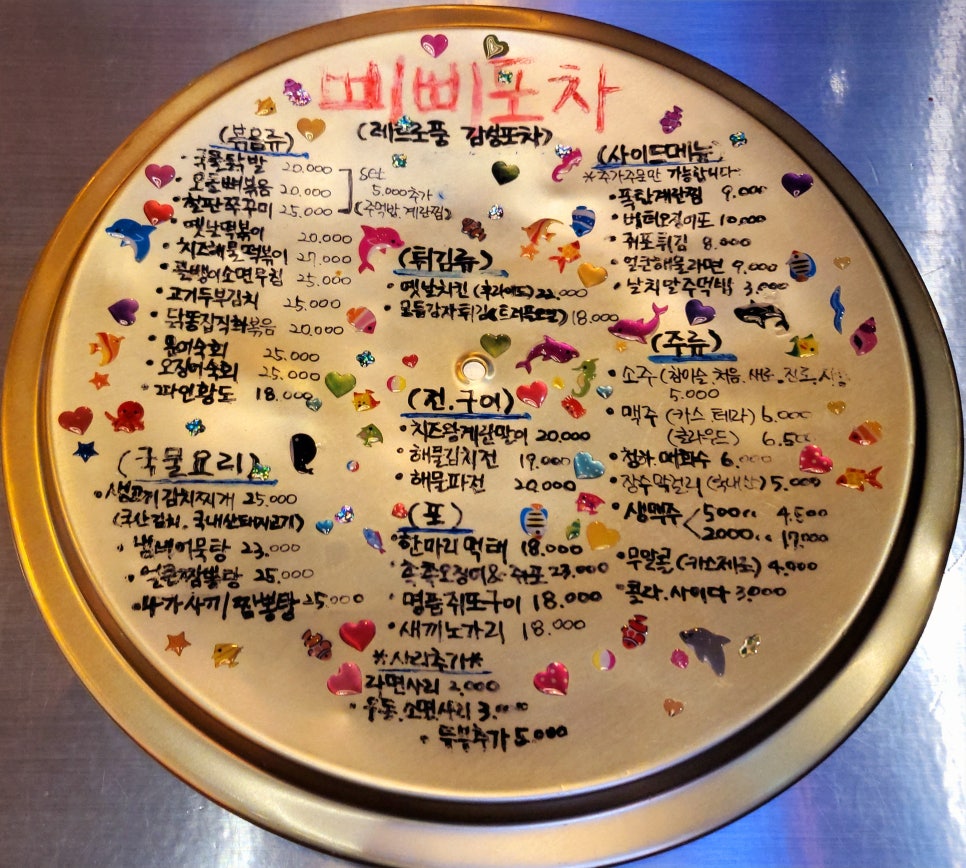 삐삐포차
(레트로풍 감성포차)
(볶음류)
• 국물닭발 20.000
• 오돌뼈볶음 20.000
• 철판쭈꾸미 25.000
set
5.000추가
(주먹밥, 계란찜)
• 옛날떡볶이 20.000
• 치즈해물떡볶이 27.000
• 골뱅이소면무침 25.000
• 고기두부김치 25.000
• 닭똥집직화볶음 20.000
• 문어숙회 25.000
• 오징어숙회 25.000
• 파인황도 18.000
(국물요리)
• 생고기김치찌개 25.000
(국산김치, 국내산돼지고기)
• 냄비어묵탕 23.000
• 얼큰짬뽕탕 25.000
• 나가사끼 짬뽕탕 25.000
(튀김류)
• 옛날치킨 (후라이드) 22.000
• 모듬감자튀김 (트러플오일) 18.000
(전.구이)
• 치즈왕계란말이 20.000
• 해물김치전 19.000
• 해물파전 20.000
(포)
• 한마리먹태 18.000
• 촉촉오징어&쥐포 23.000
• 명품쥐포구이 18.000
• 새끼노가리 18.000
*사리추가*
라면사리 2.000
• 우동.소면사리 3.000
• 두부추가 5.000
(사이드메뉴)
*추가주문만 가능합니다
• 폭탄계란찜 9.000
• 버터오징어포 10.000
• 쥐포튀김 8.000
• 얼큰해물라면 9.000
• 날치알주먹밥 3.000
(주류)
• 소주 (참이슬, 처음, 새로, 진로,
5.000
• 맥주 (카스 테라) 6.000
(클라우드) 6.500
• 청하.매화수 6.000
• 장수막걸리 (국내산) 5.000
• 생맥주 500cc 4.500
2000cc 17.000
• 무알콜 (카스제로) 4.000
• 콜라.사이다 3.000